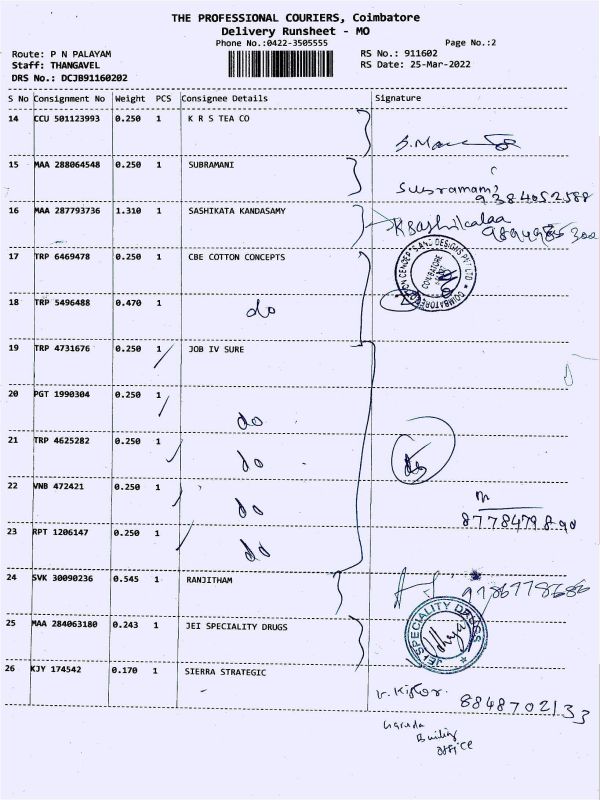 THE PROFESSIONAL COURIERS, Coimbatore
Delivery Runsheet - MO
Phone No.:0422-3505555
Page No.:2
Route: P N PALAYAM
RS No.: 911602
Staff: THANGAVEL
RS Date: 25-Mar-2022
DRS No.: DCJB91160202
S No Consignment No Weight PCS Consignee Details Signature
14 CCU 501123993 0.250 1 K R S TEA CO
15 MAA 288064548 0.250 1 SUBRAMANI
Subramani
9384052588
16 MAA 287793736 1.310 1 SASHIKATA KANDASAMY
17 TRP 6469478 0.250 1 CBE COTTON CONCEPTS
18 TRP 5496488 0.470 1 do
19 TRP 4731676 0.250 1 JOB IV SURE
20 PGT 1990304 0.250 1 do
21 TRP 4625282 0.250 1 do
22 VNB 472421 0.250 1 do
8778479890
23 RPT 1206147 0.250 1 do
24 SVK 30090236 0.545 1 RANJITHAM
9786778686
25 MAA 284063180 0.243 1 JEI SPECIALITY DRUGS
JEI SPECIALITY DRUGS
26 KJY 174542 0.170 1 SIERRA STRATEGIC
8848702133
office